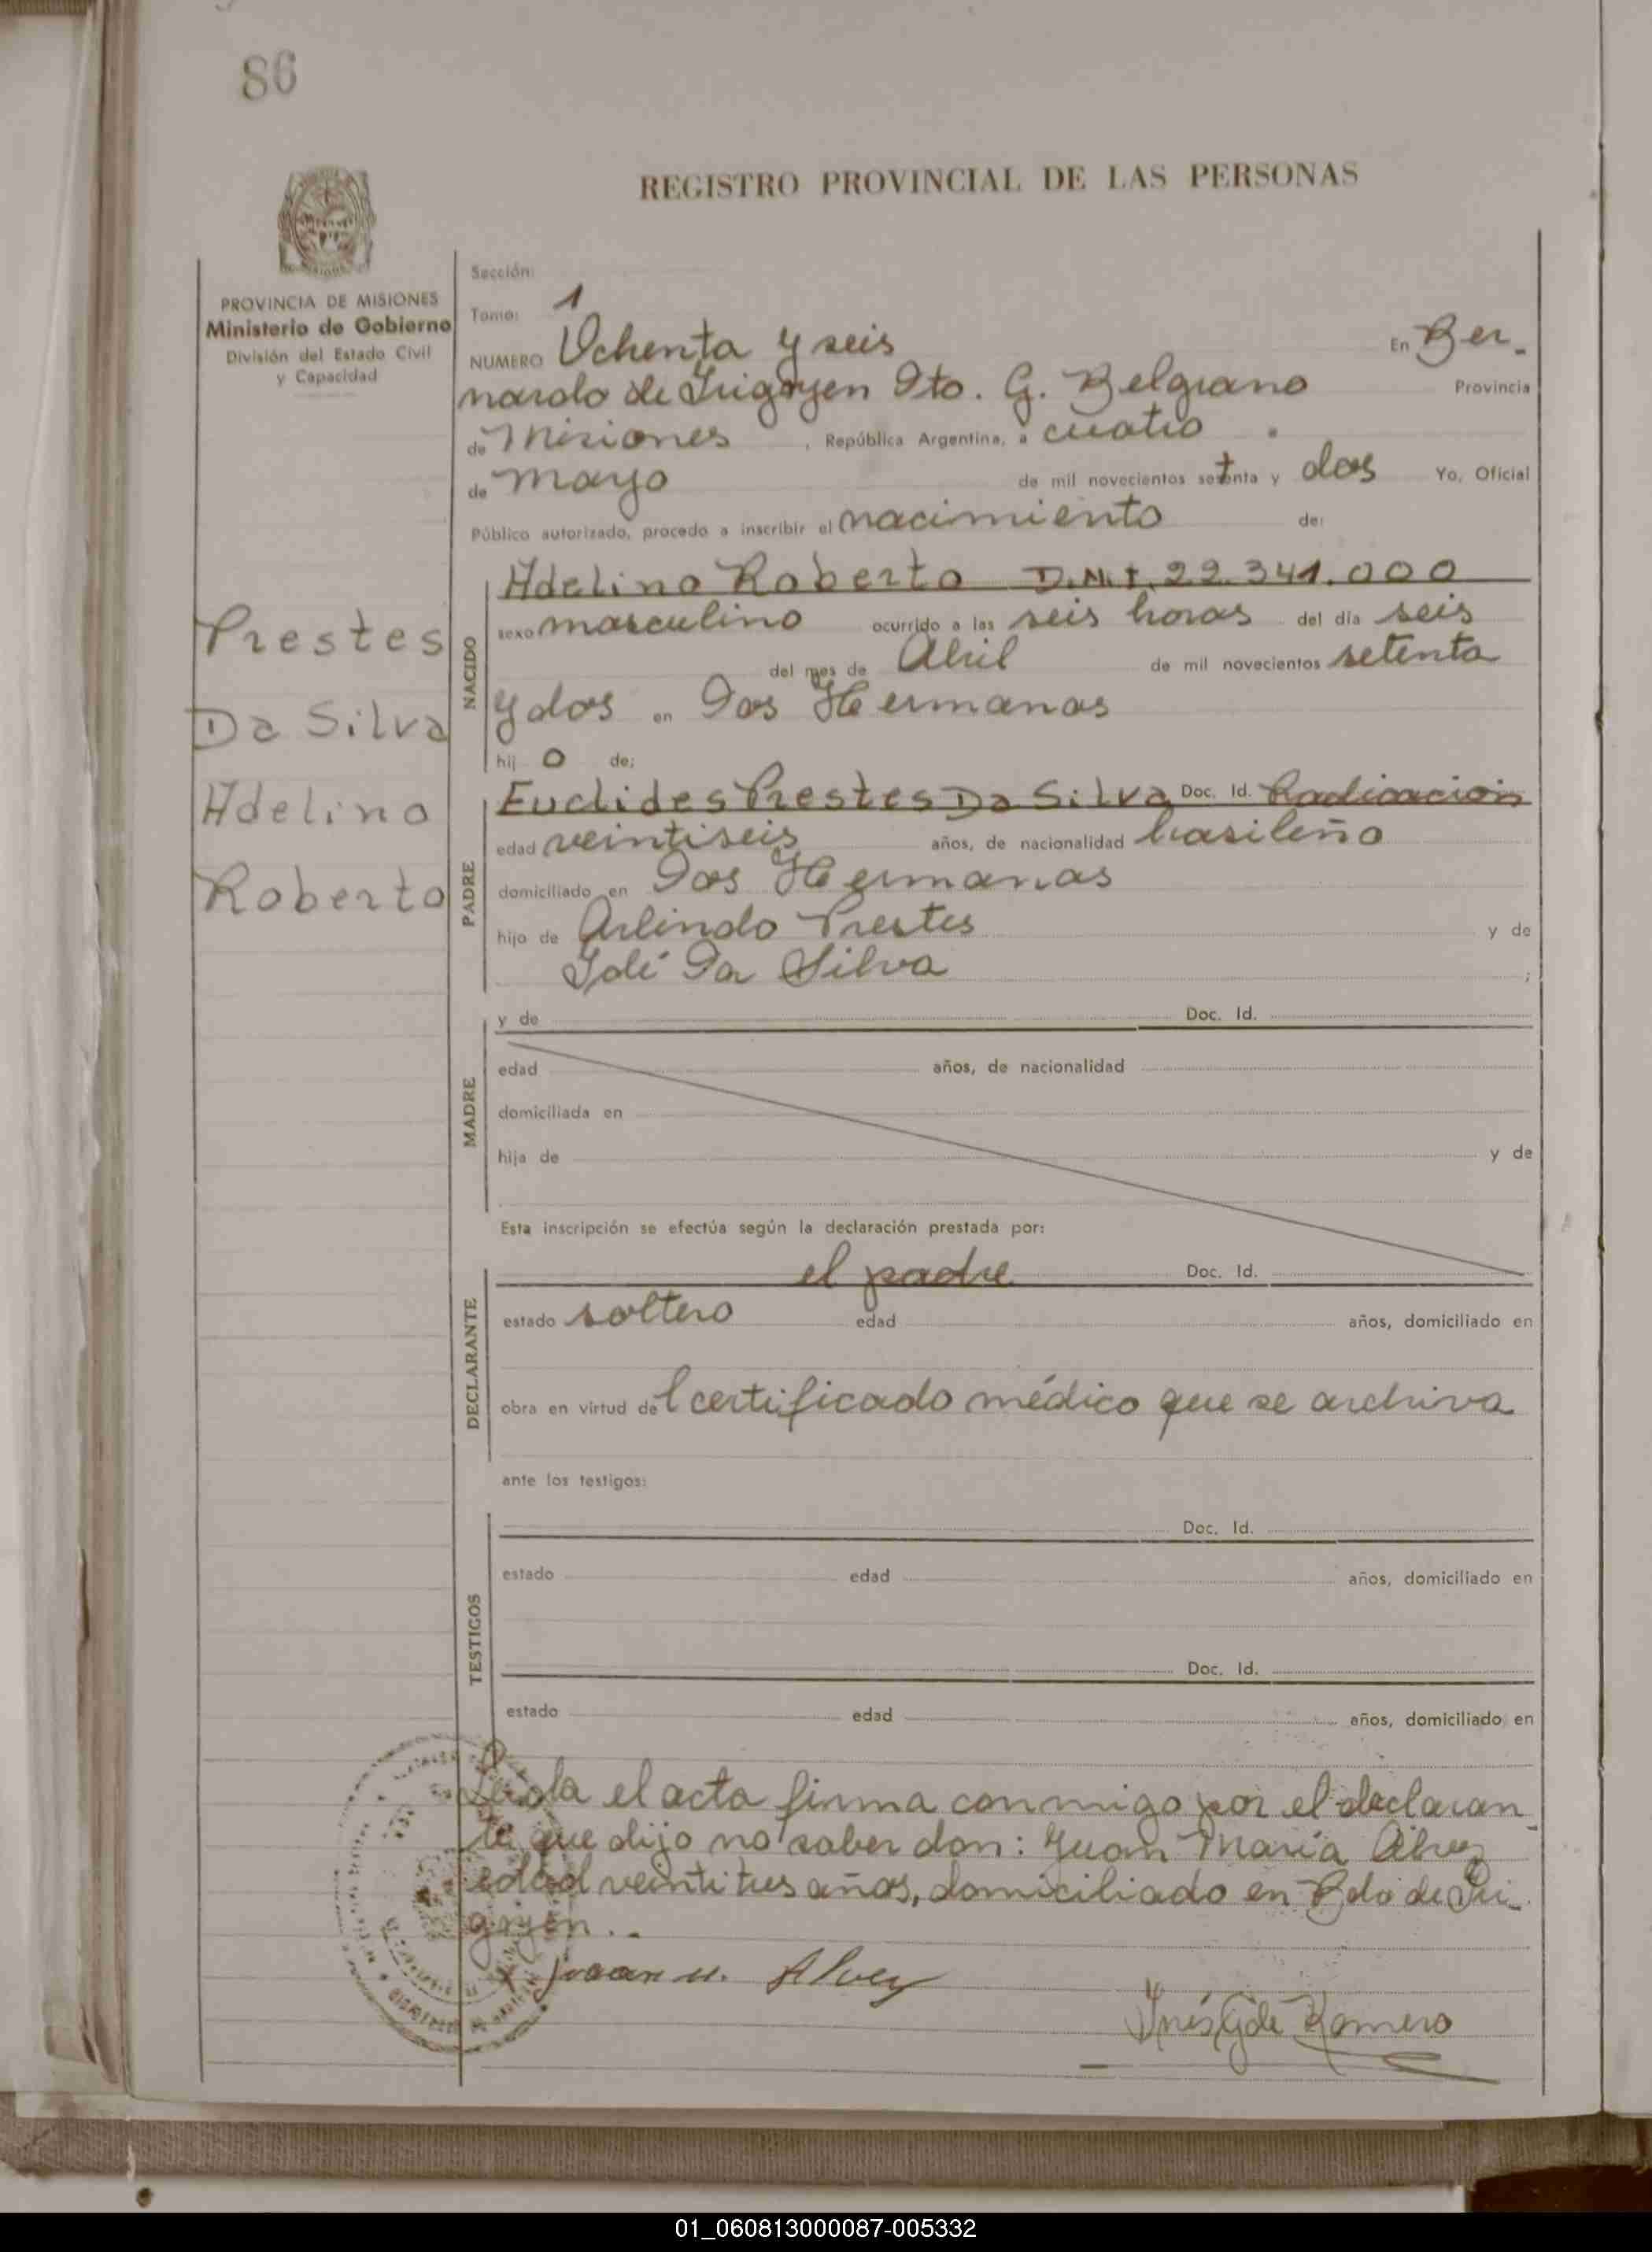 86
REGISTRO PROVINCIAL DE LAS PERSONAS
PROVINCIA DE MISIONES
Ministerio de Gobierno
División del Estado Civil
y Capacidad
Sección:
Tomo: 1
NUMERO Ochenta y seis En Ber-
nardo de Irigoyen Dto. G. Belgrano Provincia
de Misiones, República Argentina, a cuatro
de mayo de mil novecientos setenta y dos Yo, Oficial
Público autorizado, procedo a inscribir el nacimiento de:
Prestes
Da Silva
Adelino
Roberto
NACIDO
Adelino Roberto D.N.I. 22.341.000
sexo masculino ocurrido a las seis horas del día seis
del mes de Abril de mil novecientos setenta
y dos en Dos Hermanas
hij o de:
PADRE
Euclides Prestes Da Silva Doc. Id. Radicación
edad veintiseis años, de nacionalidad brasileño
domiciliado en Dos Hermanas
hijo de Arlindo Prestes y de
Da Silva ;
MADRE
y de Doc. Id.
edad años, de nacionalidad
domiciliada en
hija de y de
Esta inscripción se efectúa según la declaración prestada por:
DECLARANTE
el padre Doc. Id.
estado soltero edad años, domiciliado en
obra en virtud del certificado médico que se archiva
ante los testigos:
TESTIGOS
Doc. Id.
estado edad años, domiciliado en
Doc. Id.
estado edad años, domiciliado en
Leida el acta firma conmigo por el declaran-
te que dijo no saber don: Juan María Alvez
edad veintitres años, domiciliado en Bdo de Iri-
goyen..
x Juan M. Alvez
Inés G de Romero
01_060813000087-005332